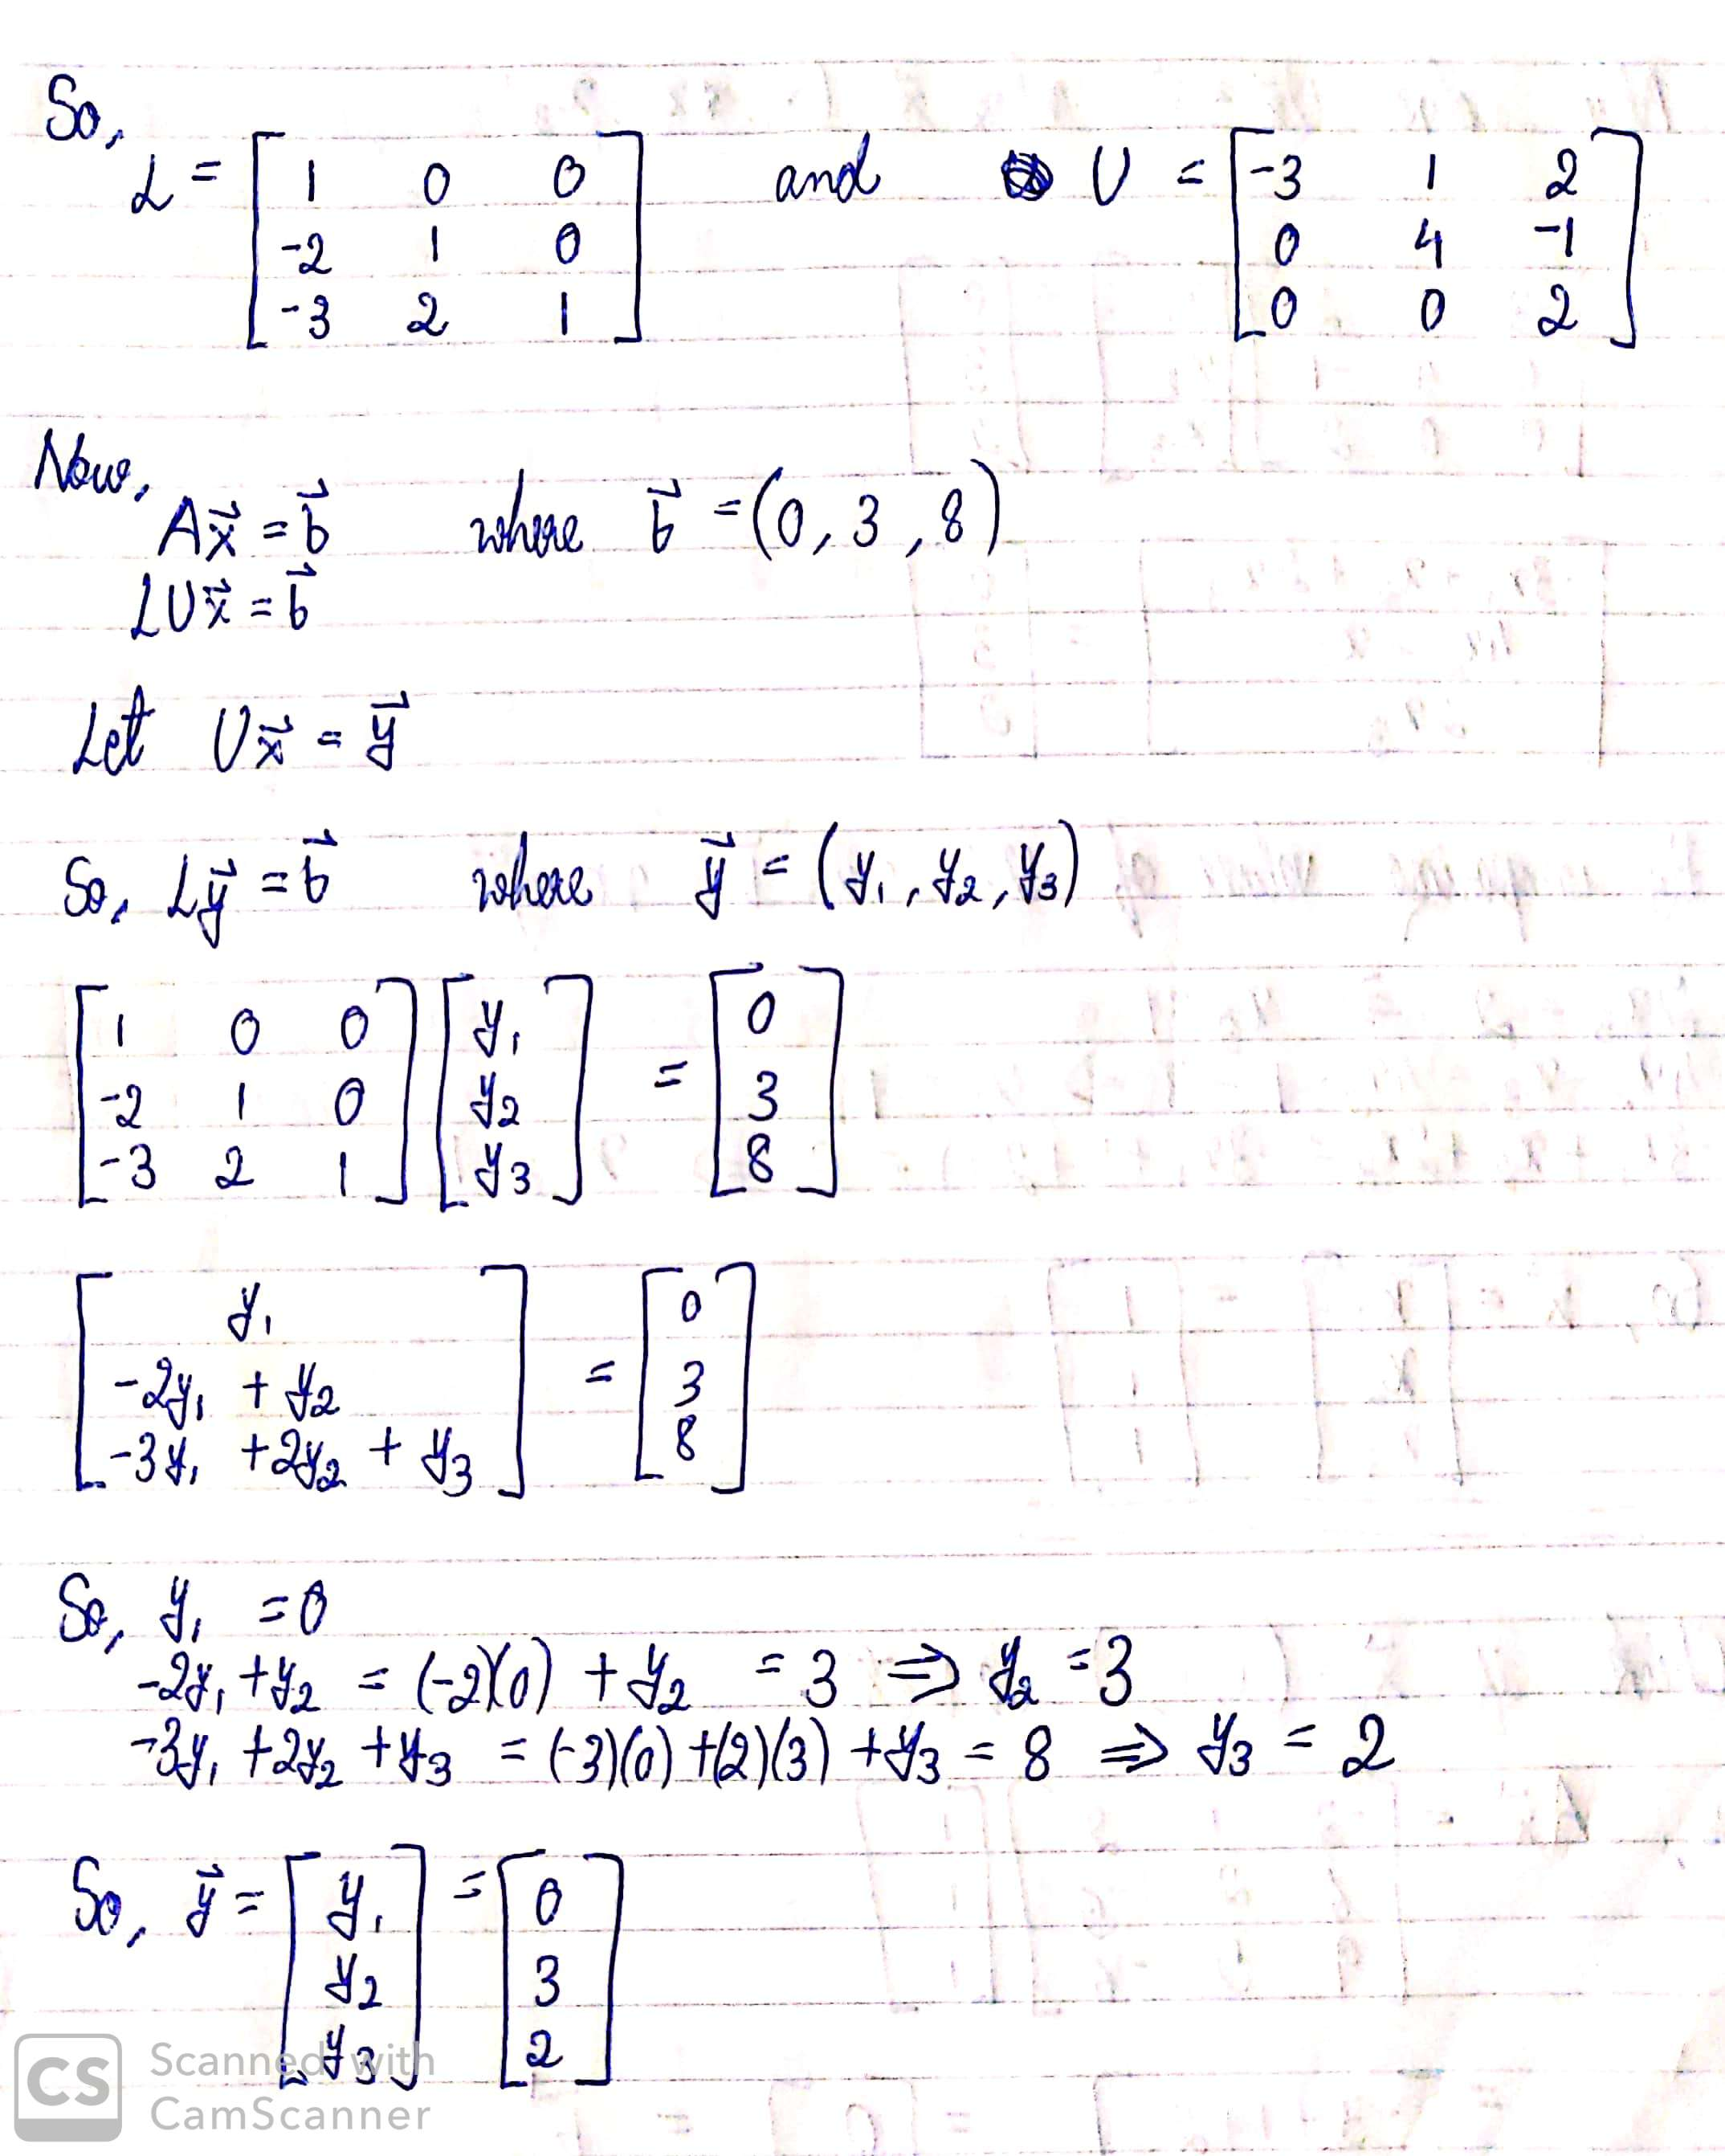 So,
L = [ 1 0 0 ] and U = [ -3 1 2 ]
[ -2 1 0 ] [ 0 4 -1 ]
[ -3 2 1 ] [ 0 0 2 ]
Now,
Ax⃗ = b⃗ where b⃗ = (0, 3, 8)
LUx⃗ = b⃗
Let Ux⃗ = y⃗
So, Ly⃗ = b⃗ where y⃗ = (y₁, y₂, y₃)
[ 1 0 0 ] [ y₁ ] = [ 0 ]
[ -2 1 0 ] [ y₂ ] [ 3 ]
[ -3 2 1 ] [ y₃ ] [ 8 ]
[ y₁ ] = [ 0 ]
[ -2y₁ + y₂ ] [ 3 ]
[ -3y₁ + 2y₂ + y₃ ] [ 8 ]
So, y₁ = 0
-2y₁ + y₂ = (-2)(0) + y₂ = 3 ⇒ y₂ = 3
-3y₁ + 2y₂ + y₃ = (-3)(0) + (2)(3) + y₃ = 8 ⇒ y₃ = 2
So, y⃗ = [ y₁ ] = [ 0 ]
[ y₂ ] [ 3 ]
[ y₃ ] [ 2 ]
CS Scanned with
CamScanner